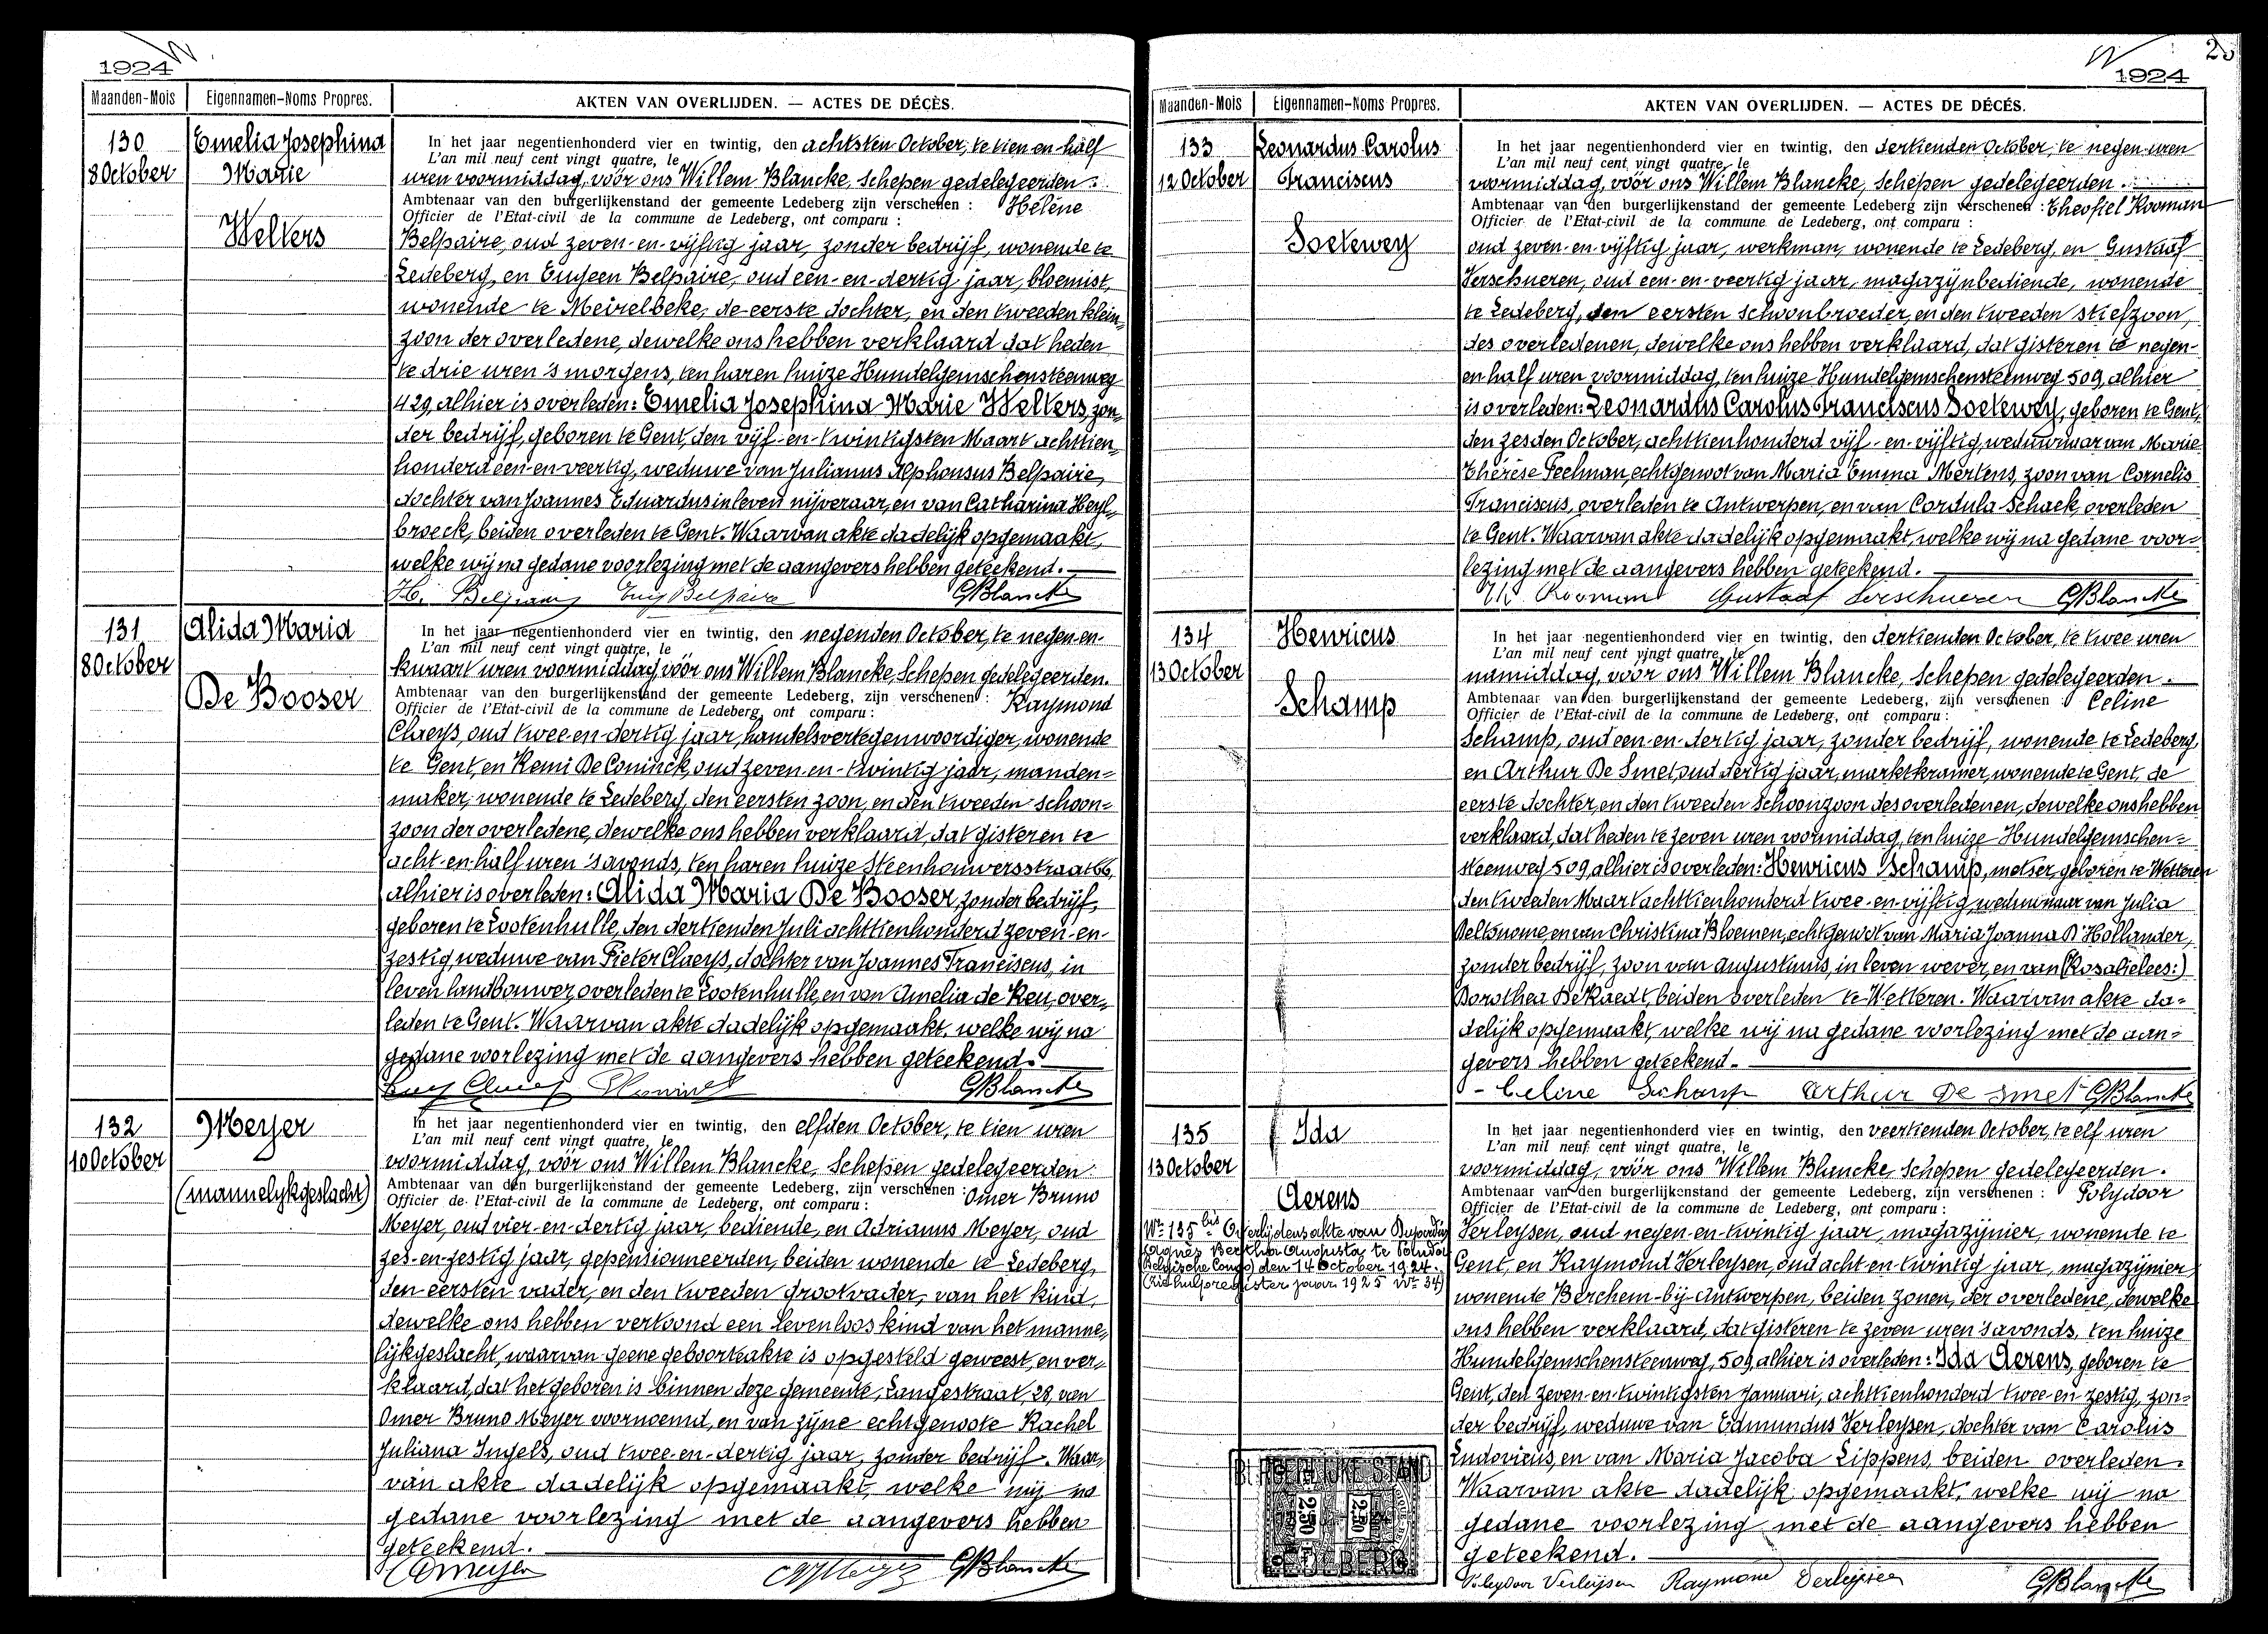 1924
Maanden-Mois Eigennamen-Noms Propres. AKTEN VAN OVERLIJDEN. — ACTES DE DÉCÈS.
130
8 October
Emelia Josephina
Marie
Welters
In het jaar negentienhonderd vier en twintig, den achtsten October, te tien en half
L'an mil neuf cent vingt quatre, le
uren voormiddag, vóór ons Willem Blancke, Schepen gedelegeerden.
Ambtenaar van den burgerlijkenstand der gemeente Ledeberg zijn verschenen : Hélène
Officier de l'Etat-civil de la commune de Ledeberg, ont comparu :
Belpaire, oud zeven-en-vijftig jaar, zonder bedrijf, wonende te
Ledeberg, en Eugeen Belpaire, oud een-en-dertig jaar, bloemist,
wonende te Meirelbeke, de eerste dochter, en den tweeden klein-
zoon der overledene, dewelke ons hebben verklaard dat heden
te drie uren 's morgens, ten haren huize Hundelgemschensteenweg
429, alhier is overleden: Emelia Josephina Marie Welters, zon-
der bedrijf, geboren te Gent, den vijf-en-twintigsten Maart achttien-
honderd een-en-veertig, weduwe van Julianus Alphonsus Belpaire,
dochter van Joannes Eduardus in leven nijveraar, en van Catharina Heyl-
broeck, beiden overleden te Gent. Waarvan akte dadelijk opgemaakt,
welke wij na gedane voorlezing met de aangevers hebben geteekend.
Eug Belpaire GBlancke
131
8 October
Alida Maria
De Booser
In het jaar negentienhonderd vier en twintig, den negenden October, te negen-en-
L'an mil neuf cent vingt quatre, le
kwaart uren voormiddag, vóór ons Willem Blancke, Schepen gedelegeerden.
Ambtenaar van den burgerlijkenstand der gemeente Ledeberg, zijn verschenen : Raymond
Officier de l'Etat-civil de la commune de Ledeberg, ont comparu :
Claeys, oud twee en dertig jaar, handelsvertegenwoordiger, wonende
te Gent, en Remi De Coninck, oud zeven-en-twintig jaar, manden-
maker, wonende te Ledeberg, den eersten zoon, en den tweeden schoon-
zoon der overledene, dewelke ons hebben verklaard, dat gisteren te
acht-en-half uren 's avonds, ten haren huize Steenhouwersstraat 66,
alhier is overleden: Alida Maria De Booser, zonder bedrijf,
geboren te Lootenhulle, den dertienden Juli achttienhonderd zeven-en-
zestig, weduwe van Pieter Claeys, dochter van Joannes Franciscus, in
leven landbouwer, overleden te Lootenhulle, en van Amelia de Reu, over-
leden te Gent. Waarvan akte dadelijk opgemaakt, welke wij na
gedane voorlezing met de aangevers hebben geteekend.
GBlancke
132
10 October
Meyer
(mannelijkgeslacht)
In het jaar negentienhonderd vier en twintig, den elfden October, te tien uren
L'an mil neuf cent vingt quatre, le
voormiddag, vóór ons Willem Blancke, Schepen gedelegeerden
Ambtenaar van den burgerlijkenstand der gemeente Ledeberg, zijn verschenen : Omer Bruno
Officier de l'Etat-civil de la commune de Ledeberg, ont comparu :
Meyer, oud vier-en-dertig jaar, bediende, en Adrianus Meyer, oud
zes-en-zestig jaar, gepensionneerden, beiden wonende te Ledeberg,
den eersten vader, en den tweeden grootvader, van het kind,
dewelke ons hebben vertoond een levenloos kind van het manne-
lijkgeslacht, waarvan geene geboorteakte is opgesteld geweest, en ver-
klaard, dat het geboren is binnen deze gemeente, Langestraat, 28, van
Omer Bruno Meyer voornoemd, en van zijne echtgenoote Rachel
Juliana Ingels, oud twee-en-dertig jaar, zonder bedrijf. Waar-
van akte dadelijk opgemaakt, welke wij na
gedane voorlezing met de aangevers hebben
geteekend.
OMeyer GBlancke
1924
Maanden-Mois Eigennamen-Noms Propres. AKTEN VAN OVERLIJDEN. — ACTES DE DÉCÉS.
133
12 October
Leonardus Carolus
Franciscus
Soetewey
In het jaar negentienhonderd vier en twintig, den dertienden October, te negen uren
L'an mil neuf cent vingt quatre, le
voormiddag, vóór ons Willem Blancke, Schepen gedelegeerden.
Ambtenaar van den burgerlijkenstand der gemeente Ledeberg zijn verschenen : Theofiel Kooman
Officier de l'Etat-civil de la commune de Ledeberg, ont comparu :
oud zeven-en-vijftig jaar, werkman, wonende te Ledeberg, en Gustaaf
Verschueren, oud een-en-veertig jaar, magazijnbediende, wonende
te Ledeberg, den eersten schoonbroeder, en den tweeden stiefzoon,
des overledenen, dewelke ons hebben verklaard, dat gisteren te negen-
en half uren voormiddag, ten huize Hundelgemschensteenweg 509, alhier
is overleden: Leonardus Carolus Franciscus Soetewey, geboren te Gent,
den zesden October, achttienhonderd vijf-en-vijftig, weduwnaar van Marie
Thérèse Peelman, echtgenoot van Maria Emma Mertens, zoon van Cornelis
Franciscus, overleden te Antwerpen, en van Cordula Schaek, overleden
te Gent. Waarvan akte dadelijk opgemaakt, welke wij na gedane voor-
lezing met de aangevers hebben geteekend.
Gustaaf Verschueren GBlancke
134
13 October
Henricus
Schamp
In het jaar negentienhonderd vier en twintig, den dertienden October, te twee uren
L'an mil neuf cent vingt quatre, le
namiddag, vóór ons Willem Blancke, Schepen gedelegeerden.
Ambtenaar van den burgerlijkenstand der gemeente Ledeberg, zijn verschenen : Celine
Officier de l'Etat-civil de la commune de Ledeberg, ont comparu :
Schamp, oud een-en-dertig jaar, zonder bedrijf, wonende te Ledeberg,
en Arthur De Smet, oud dertig jaar, marktkramer, wonende te Gent, de
eerste dochter, en den tweeden schoonzoon des overledenen, dewelke ons hebben
verklaard, dat heden te zeven uren voormiddag, ten huize Hundelgemschen-
steenweg 509, alhier is overleden: Henricus Schamp, metser, geboren te Wetteren
den tweeden Maart achttienhonderd twee-en-vijftig, weduwnaar van Julia
en van Christina Bloemen, echtgenoot van Maria Joanna D'Hollander,
zonder bedrijf, zoon van Augustinus, in leven wever, en van (Rosalie lees:)
Dorothea De Raedt, beiden overleden te Wetteren. Waarvan akte da-
delijk opgemaakt, welke wij na gedane voorlezing met de aan-
gevers hebben geteekend.
Celine Schamp Arthur De Smet GBlancke
135
13 October
Ida
Aerens
Nr 135 bis Overlijdensakte van
Agnès Bertha Augusta te
(Belgische Congo) den 14 October 1924.
(Zie hulpregister jaar 1925 Nr 34)
In het jaar negentienhonderd vier en twintig, den veertienden October, te elf uren
L'an mil neuf cent vingt quatre, le
voormiddag, vóór ons Willem Blancke, Schepen gedelegeerden.
Ambtenaar van den burgerlijkenstand der gemeente Ledeberg, zijn verschenen : Polydoor
Officier de l'Etat-civil de la commune de Ledeberg, ont comparu :
Verleysen, oud negen-en-twintig jaar, magazijnier, wonende te
Gent, en Raymond Verleysen, oud acht-en-twintig jaar, magazijnier,
wonende Berchem-bij-Antwerpen, beiden zonen, der overledene, dewelke
ons hebben verklaard, dat gisteren te zeven uren 's avonds, ten huize
Hundelgemschensteenweg, 509, alhier is overleden: Ida Aerens, geboren te
Gent, den zeven-en-twintigsten Januari, achttienhonderd twee-en-zestig, zon-
der bedrijf, weduwe van Edmundus Verleysen, dochter van Carolus
Ludovicus, en van Maria Jacoba Lippens, beiden overleden.
Waarvan akte dadelijk opgemaakt, welke wij na
gedane voorlezing met de aangevers hebben
geteekend.
Polydoor Verleijsen Raymond Verleijsen GBlancke
2.50 2.50
LEDEBERG